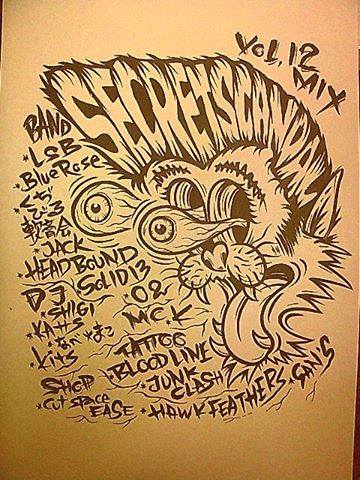 VOL.12
MIX
SECRET SCANDAL
BAND
LOB
*Blue Rose
*くちびる
JACK
*HEADBOUND
DJ
*SOLID13
*SHIGI
*O2
*KAHS
*M.C.K
*Kihs
TATTOO
*BLOODLINE
SHOP
*JUNK
CLASH
*CUT SPACE
EASE
*HAWKFEATHERS *GAN'S